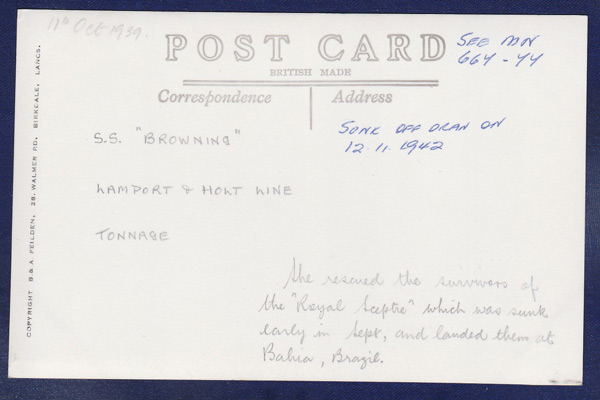 11th Oct 1939.
POST CARD
BRITISH MADE
SEE MN
664-44
Correspondence
Address
S.S. "BROWNING"
SUNK OFF ORAN ON
12.11.1942
LAMPORT & HOLT LINE
TONNAGE
She rescued the survivors of
the "Royal Sceptre" which was sunk
early in Sept, and landed them at
Bahia, Brazil.
COPYRIGHT B & A FEILDEN, 28, WALMER RD, BIRKDALE, LANCS.